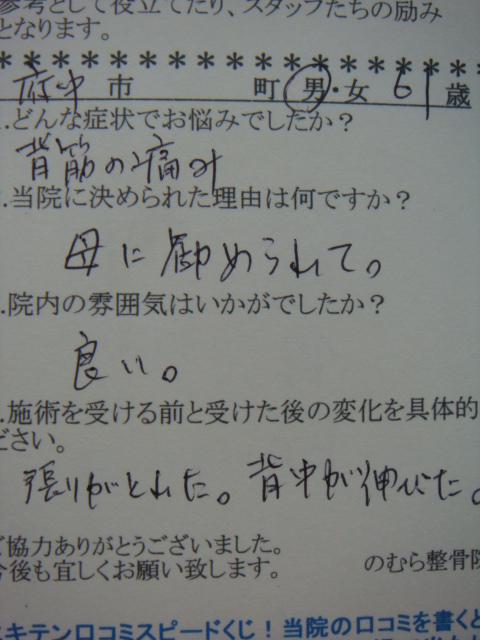 参考として役立てたり、スタッフたちの励み
となります。
＊＊＊＊＊＊＊＊＊＊＊＊＊＊＊＊＊＊
府中 市 町 男・女 61 歳
.どんな症状でお悩みでしたか？
背筋の痛み
.当院に決められた理由は何ですか？
母に勧められて。
.院内の雰囲気はいかがでしたか？
良い。
.施術を受ける前と受けた後の変化を具体的
ださい。
張りがとれた。背中が伸びた。
ご協力ありがとうございました。
今後も宜しくお願い致します。 のむら整骨院
エキテン口コミスピードくじ！当院の口コミを書くと